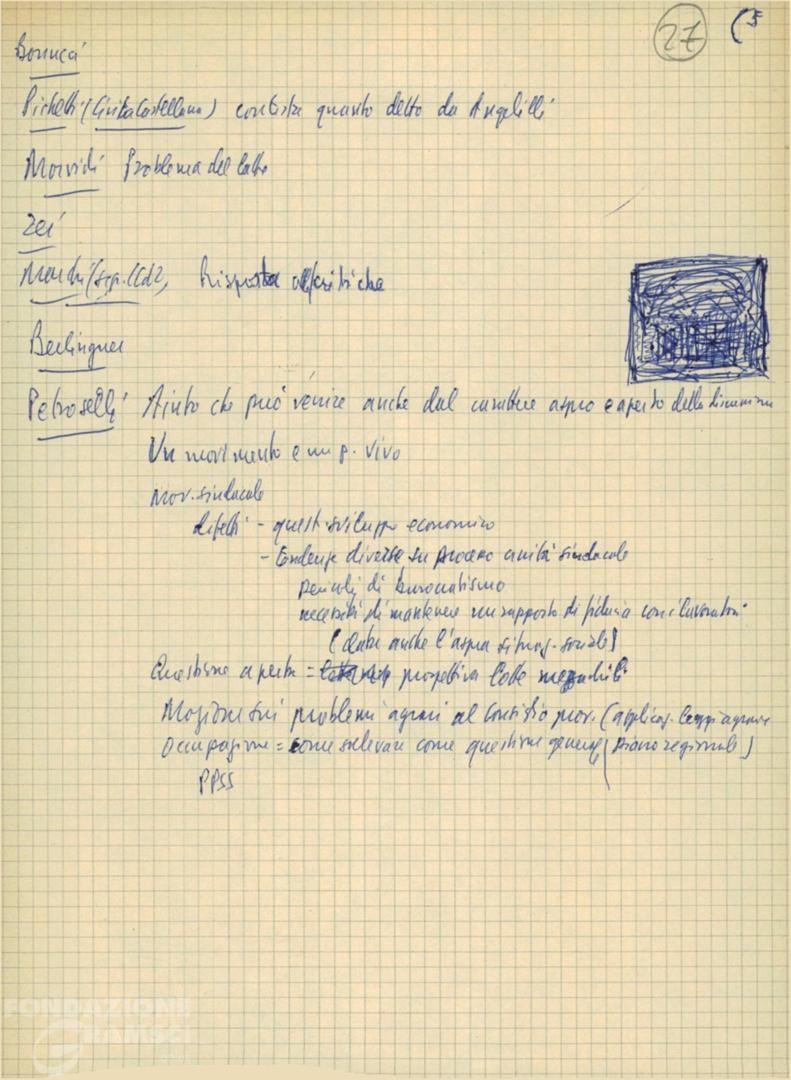 27 (5
Bonucci
Pichetti (Civita Castellana) contesta quanto detto da Angelilli
Morvidi Problema del latte
Zei
Menchi (segr. CCdL) Risposta alle critiche
Berlinguer
Petroselli Aiuto che può venire anche dal carattere aspro e aperto della discussione
Un movimento e un p. vivo
Mov. sindacale
difetti - quest. sviluppo economico
- tendenze diverse su processo unità sindacale
pericoli di burocratismo
necessità di mantenere un rapporto di fiducia con i lavoratori
(data anche l'aspra situaz. sociale)
Questione aperta = prospettiva lotte mezzadrili
Mozione sui problemi agrari al Consiglio prov. (applicaz. leggi agrarie
Occupazione = come sollevare come questione generale (Piano regionale)
PPSS
FONDAZIONE
GRAMSCI